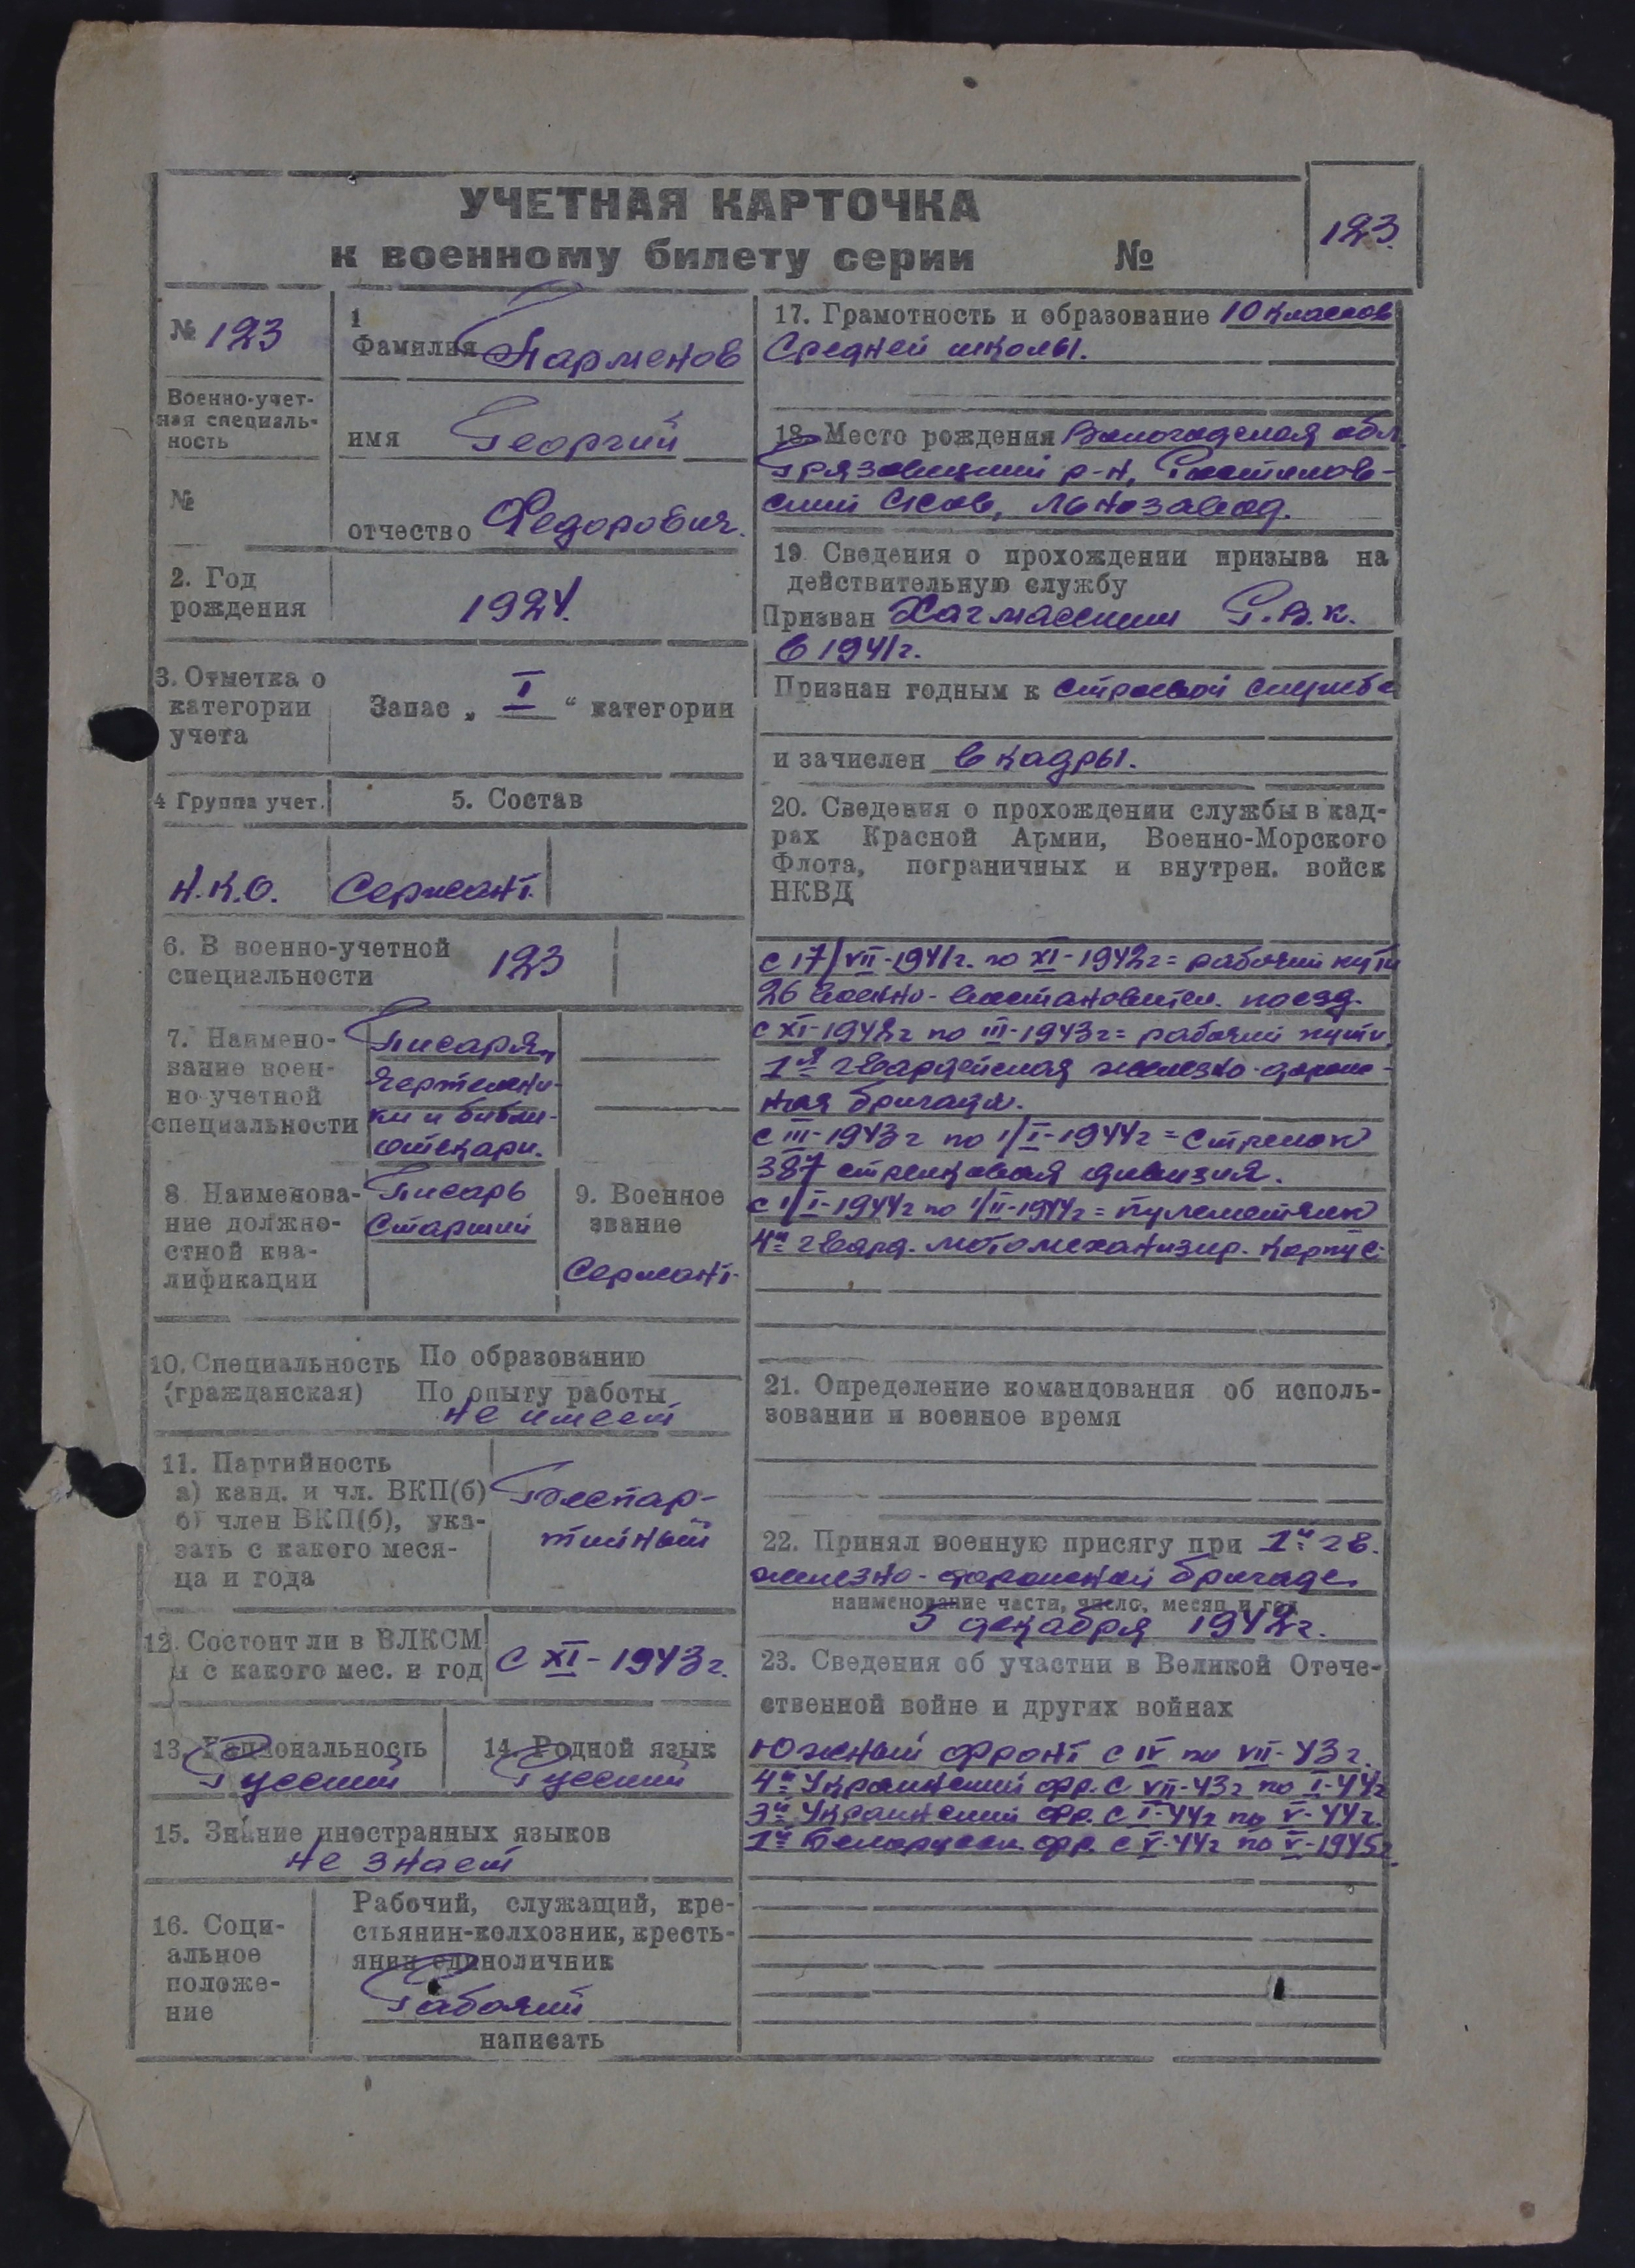 УЧЕТНАЯ КАРТОЧКА
к военному билету серии №
123.
№ 123
1
Фамилия Парменов
Военно-учет-
ная специаль-
ность
имя Георгий
№
отчество Федорович.
2. Год
рождения
1924.
3. Отметка о
категории
учета
Запас „ I “ категории
4 Группа учет.
5. Состав
Н.К.О. Сержант.
6. В военно-учетной
специальности
123
7. Наимено-
вание воен-
но-учетной
специальности
Писаря,
чертежни-
ки и библи-
отекари.
8 Наименова-
ние должно-
стной ква-
лификации
Писарь
Старший
9. Военное
звание
Сержант.
10. Специальность
(гражданская)
По образованию
По опыту работы
не имеет
11. Партийность
а) канд. и чл. ВКП(б)
б) член ВКП(б), ука-
зать с какого меся-
ца и года
Беспар-
тийный
12. Состоит ли в ВЛКСМ
и с какого мес. и год
с XI-1943 г.
13. Национальность
Русский
14. Родной язык
Русский
15. Знание иностранных языков
не знает
16. Соци-
альное
положе-
ние
Рабочий, служащий, кре-
стьянин-колхозник, кресть-
янин единоличник
Рабочий
написать
17. Грамотность и образование 10 классов
Средней школы.
18. Место рождения Вологодская обл.
Грязовецкий р-н, Ростилов-
ский с/сов, Льнозавод.
19 Сведения о прохождении призыва на
действительную службу
Призван Хачмасским Г.В.К.
в 1941 г.
Признан годным к строевой службе
и зачислен в кадры.
20. Сведения о прохождении службы в кад-
рах Красной Армии, Военно-Морского
Флота, пограничных и внутрен. войск
НКВД
с 17/VII-1941 г. по XI-1942 г = рабочий пути
26 военно-восстановител. поезд.
с XI-1942 г по III-1943 г = рабочий пути,
1я гвардейская железно-дорож-
ная бригада.
с III-1943 г по 1/I-1944 г = стрелок
387 стрелковая дивизия.
с 1/I-1944 г по 1/II-1944 г = пулеметчик
4й гвард. мотомеханизир. корпус.
21. Определение командования об исполь-
зовании и военное время
22. Принял военную присягу при 1й гв.
железно-дорожной бригаде
наименование части, число, месяц и год
5 декабря 1942 г.
23. Сведения об участии в Великой Отече-
ственной войне и других войнах
Южный фронт с IV по VII-43 г.
4й Украинский фр. с VII-43 г по I-44 г
3й Украинский фр. с I-44 г по V-44 г.
1й Белорусск. фр. с V-44 г по V-1945 г.